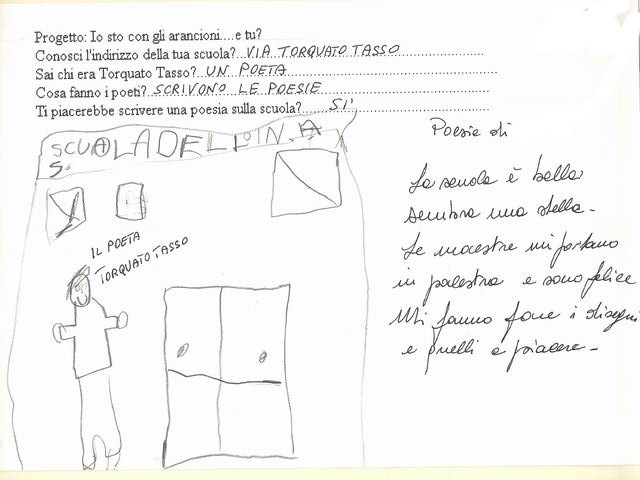 Progetto: Io sto con gli arancioni....e tu?
Conosci l'indirizzo della tua scuola? VIA TORQUATO TASSO
Sai chi era Torquato Tasso? UN POETA
Cosa fanno i poeti? SCRIVONO LE POESIE
Ti piacerebbe scrivere una poesia sulla scuola? SI'
SCUOLA DELL'IN.A
S.
IL POETA
TORQUATO TASSO
Poesie di
La scuola è bella
sembra una stella.
Le maestre mi portano
in palestra e sono felice
Mi fanno fare i disegni
e quelli a piacere.